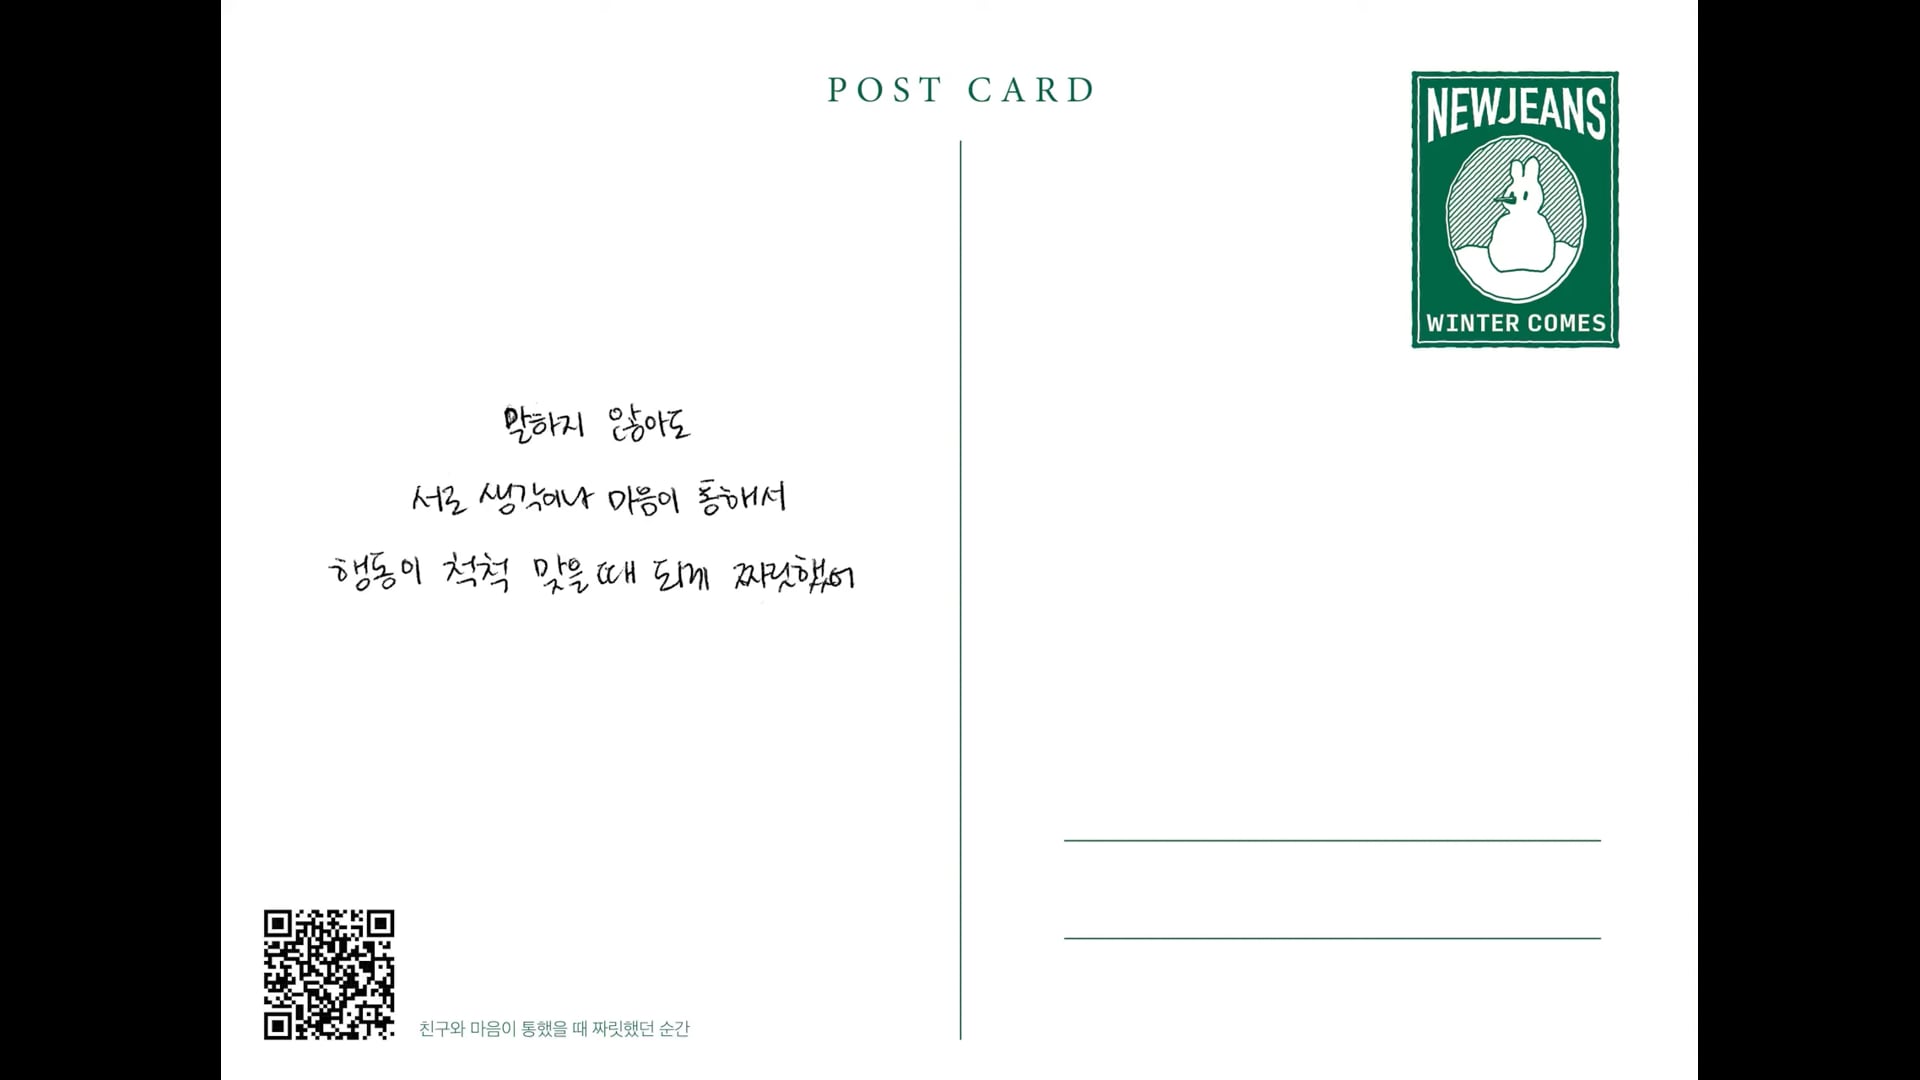 POST CARD
NEWJEANS
WINTER COMES
말하지 않아도
서로 생각이나 마음이 통해서
행동이 척척 맞을때 되게 짜릿했어
친구와 마음이 통했을 때 짜릿했던 순간